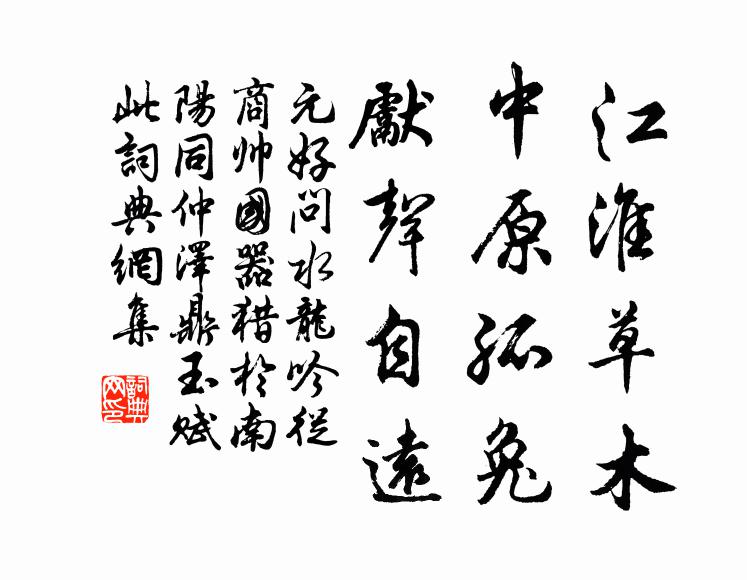 江淮草木
中原孤兔
獻聲自遠
元好问水龍吟從
商帅國器猎於南
陽同仲澤鼎玉賦
此詞典網集
詞典网印